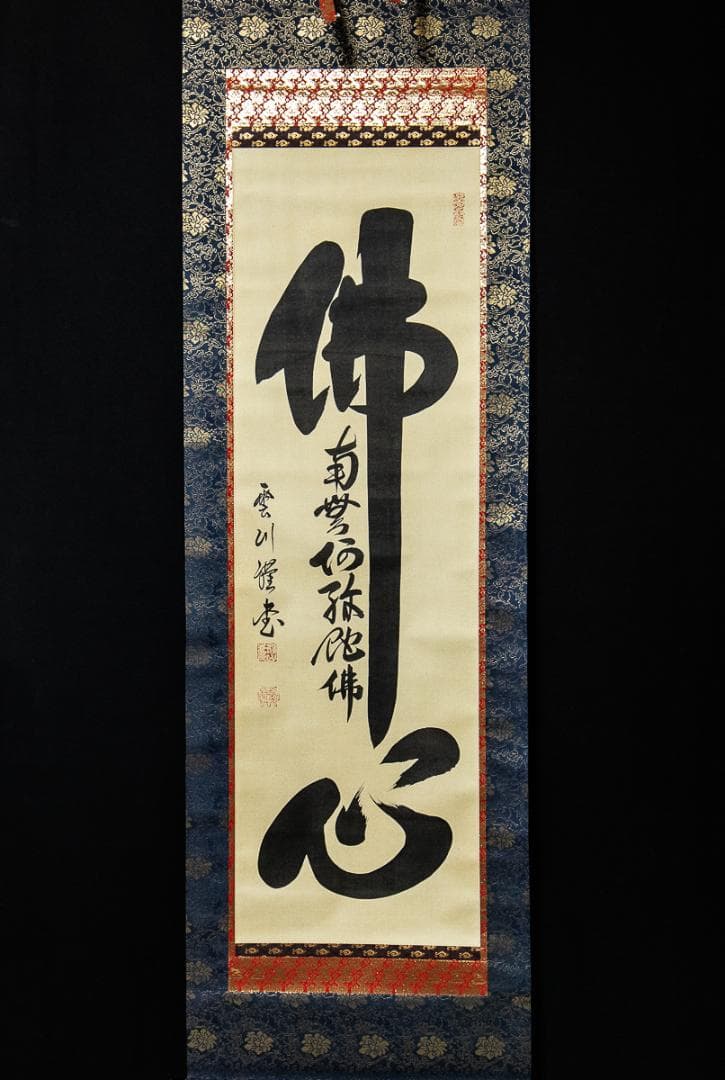 佛心
南無阿弥陀佛
雲川謹書